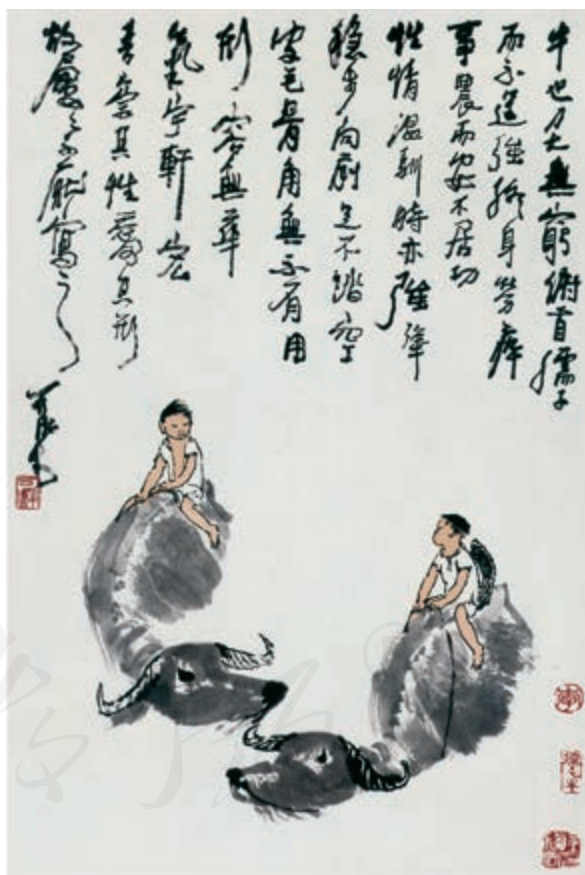 牛也力大無窮俯首孺子
而不逞強終身勞瘁
事農而安不居功
性情温馴時亦強犟
穩步向前足不踏空
皮毛骨角無不有用
形容無華
氣宇軒宏
吾崇其性愛其形
故屢々不厭寫之
可染